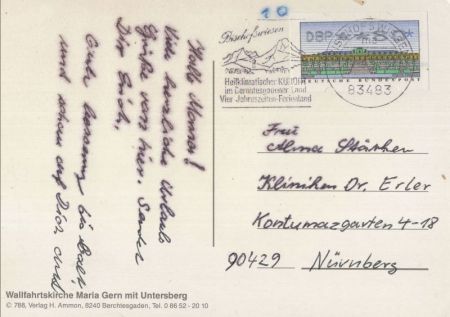 Hallo Mama!
Viele herzliche Urlaubs
Grüße von hier. Sendet
Dir Erich.
Gute Besserung bis bald.
und
10
Bischofswiesen
Heilklimatischer KURORT
im Berchtesgadener Land
Vier Jahreszeiten-Ferienland
DBP
DEUTSCHE BUNDESPOST
83483
Frau
Alma Stärken
Kliniken Dr. Erler
Kontumazgarten 4-18
90429 Nürnberg
Wallfahrtskirche Maria Gern mit Untersberg
© 788, Verlag H. Ammon, 8240 Berchtesgaden, Tel. 0 86 52 - 20 10